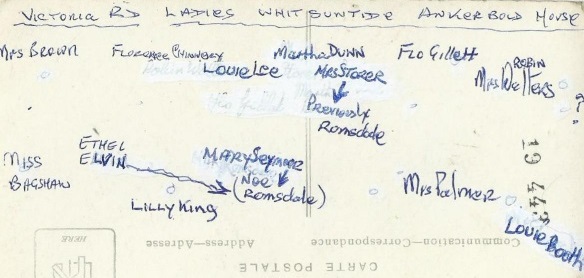 VICTORIA RD LADIES WHITSUNTIDE ANKERBOLD HOUSE
MRS BROWN FLORENCE Martha DUNN FLO Gillett ROBIN
LOUIE Lee MRS STORER MRS Welters ?
Previously
Romsdale
MISS BAGSHAW
ETHEL ELVIN
MARY Seymoor
(NEE Romsdale)
LILLY KING
Mrs Palmer
Louie Booth
19 445
Communication–Correspondance
Address–Adresse
CARTE POSTALE
HERE